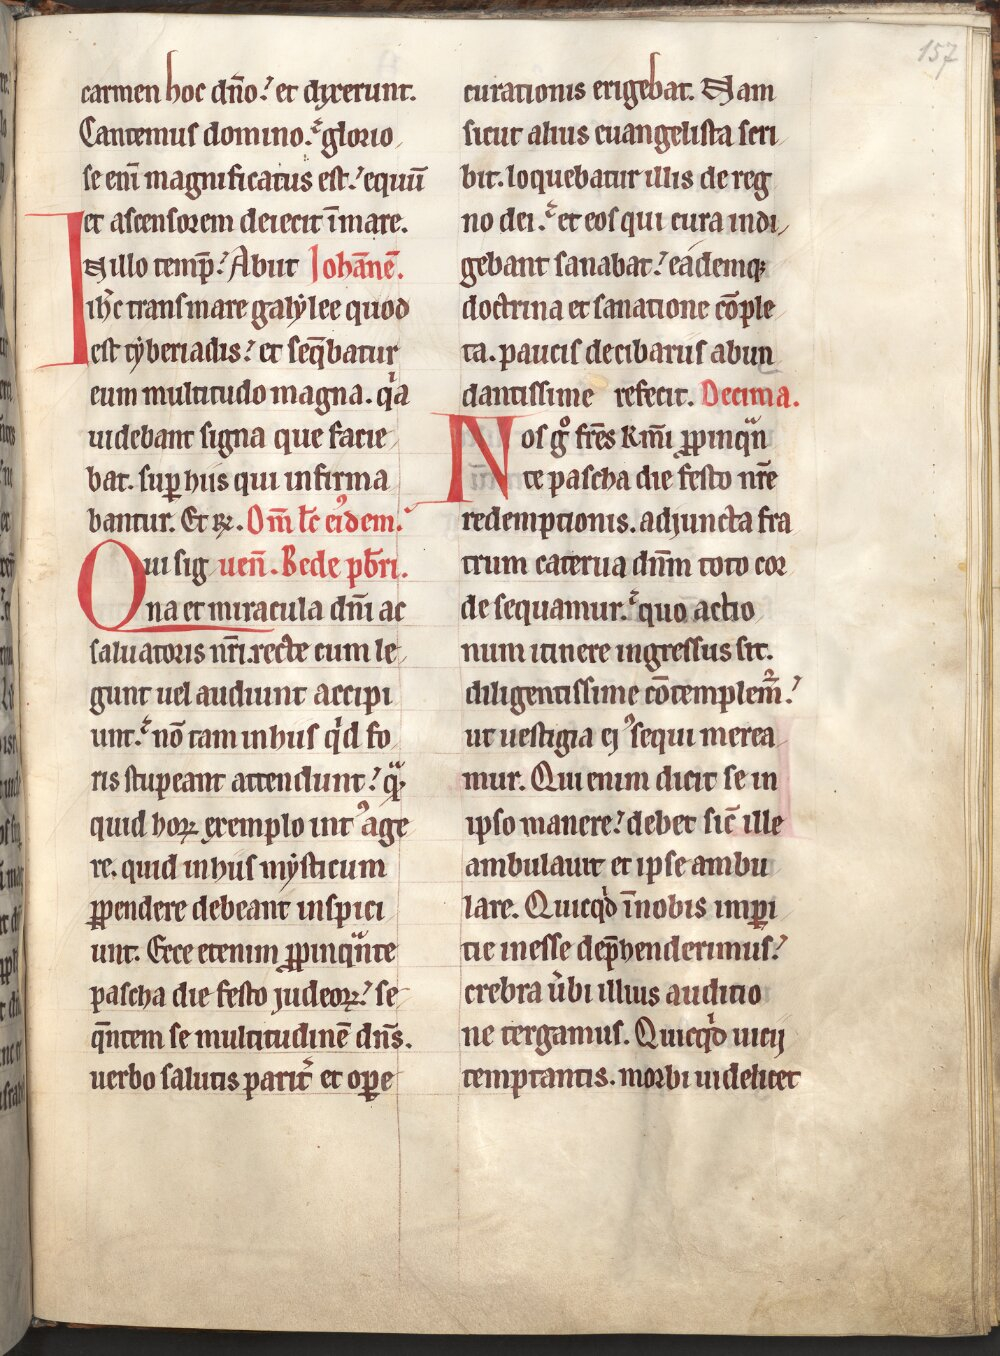 157
carmen hoc dn̄o. et dyxerunt.
Cantemus domino. glorio
se eni̅ magnificatus est. equu̅
et ascensorem deiecit i̅ mare.
In illo temp̅. Abiit Joha̅ne̅.
ih̅c trans mare galylee quod
est tyberiadis. et seq̅batur
eum multitudo magna. qͥa
uidebant signa que facie
bat. sup̲ hiis qui infirma
bantur. Et rꝫ. Om̅ l̅c eiꝰdem.
Qui sig uen̅. Bede pb̅ri.
na et miracula dn̅i ac
saluatoris nr̅i. recte cum le
gunt uel audiunt accipi
unt. no̅ tam in hiis qͥd fo
ris stupeant attendunt. qͣꝫ
quid hoꝝ exemplo intꝰ age
re. quid in hiis mysticum
ꝓpendere debeant inspici
unt. Ecce etenim ꝓpinqͣnte
pascha die festo judeoꝝ. se
qn̅tem se multitudine̅ dn̅s.
uerbo salutis parit̉ et oꝑe
curationis erigebat. Nam
sicut alius euangelista scri
bit. loquebatur illis de reg
no dei. et eos qui cura indi
gebant sanabat. eademqꝫ
doctrina et sanatione co̅ple
ta. paucis de cibariis abun
dantissime refecit. Decima.
Nos gͦ fr̅es km̅i ꝓpinqͣn
te pascha die festo nr̅e
redemptionis. adjuncta fra
trum caterua dn̅m toto cor
de sequamur. quo actio
num itinere ingressus sit.
diligentissime co̅templem̉.
ut uestigia ejꝰ sequi merea
mur. Qui enim dicit se in
ipso manere. debet sic̅ ille
ambulauit et ipse ambu
lare. Quicqͥd i̅ nobis imꝑi
tie inesse dep̅henderimus.
crebra ủbi illius auditio
ne tergamus. Quicqͥd uicij
temptantis. morbi uidelicet